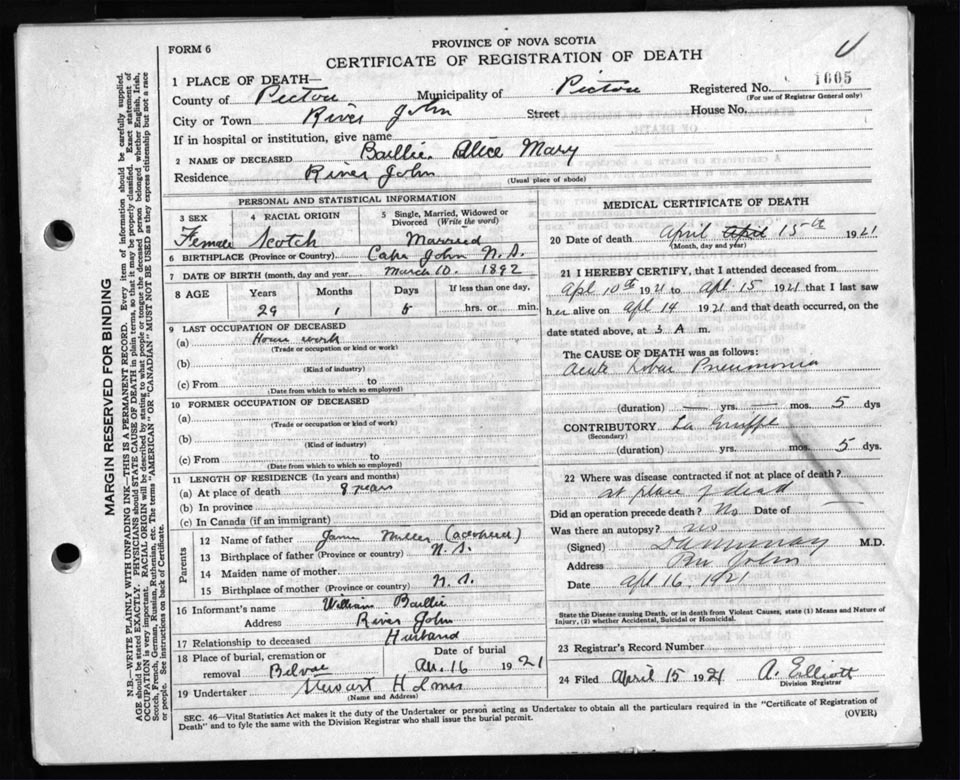 FORM 6
PROVINCE OF NOVA SCOTIA
CERTIFICATE OF REGISTRATION OF DEATH
1 PLACE OF DEATH—
County of Pictou Municipality of Pictou Registered No. 1605
(For use of Registrar General only)
City or Town River John Street House No.
If in hospital or institution, give name
2 NAME OF DECEASED Baillie Alice Mary
Residence River John
(Usual place of abode)
PERSONAL AND STATISTICAL INFORMATION
3 SEX 4 RACIAL ORIGIN 5 Single, Married, Widowed or Divorced (Write the word)
Female Scotch Married
6 BIRTHPLACE (Province or Country) Cape John N.S.
7 DATE OF BIRTH (month, day and year) March 10. 1892
8 AGE Years Months Days If less than one day,
29 1 5 hrs. or min.
9 LAST OCCUPATION OF DECEASED
(a) House work
(Trade or occupation or kind or work)
(b)
(Kind of industry)
(c) From to
(Date from which to which so employed)
10 FORMER OCCUPATION OF DECEASED
(a)
(Trade or occupation or kind of work)
(b)
(Kind of industry)
(c) From to
(Date from which to which so employed)
11 LENGTH OF RESIDENCE (In years and months)
(a) At place of death 9 years
(b) In province
(c) In Canada (if an immigrant)
Parents
12 Name of father James Miller
13 Birthplace of father (Province or country) N.S.
14 Maiden name of mother
15 Birthplace of mother (Province or country) N.S.
16 Informant's name William Baillie
Address River John
17 Relationship to deceased Husband
18 Place of burial, cremation or removal Date of burial
16 1921
19 Undertaker Stewart Holmes
(Name and Address)
MEDICAL CERTIFICATE OF DEATH
20 Date of death April April 15th 1921
(Month, day and year)
21 I HEREBY CERTIFY, that I attended deceased from
Apl 10th 1921 to Apl 15 1921 that I last saw
her alive on Apl 14 1921 and that death occurred, on the
date stated above, at 3 A m.
The CAUSE OF DEATH was as follows:
Acute Lobar Pneumonia
(duration) — yrs. — mos. 5 dys
CONTRIBUTORY La Grippe
(Secondary)
(duration) yrs. mos. 5 dys.
22 Where was disease contracted if not at place of death?
at place of
Did an operation precede death? No Date of
Was there an autopsy? no
(Signed) M.D.
Address Riv John
Date Apl 16. 1921
State the Disease causing Death, or in death from Violent Causes, state (1) Means and Nature of
Injury, (2) whether Accidental, Suicidal or Homicidal.
23 Registrar's Record Number
24 Filed April 15 1921 A. Elliott
Division Registrar
SEC. 46—Vital Statistics Act makes it the duty of the Undertaker or person acting as Undertaker to obtain all the particulars required in the "Certificate of Registration of
Death" and to fyle the same with the Division Registrar who shall issue the burial permit.
(OVER)
MARGIN RESERVED FOR BINDING
N.B.—WRITE PLAINLY WITH UNFADING INK—THIS IS A PERMANENT RECORD. Every item of information should be carefully supplied.
AGE should be stated EXACTLY. PHYSICIANS should STATE CAUSE OF DEATH in plain terms, so that it may be properly classified. Exact statement of
OCCUPATION is very important. RACIAL ORIGIN will be described by stating to what people or tongue the deceased person belonged, whether English, Irish,
Scotch, French, German, Russian, Ruthenian, etc. The terms "AMERICAN" or "CANADIAN" MUST NOT BE USED as they express citizenship but not a race
or people. See instructions on back of Certificate.